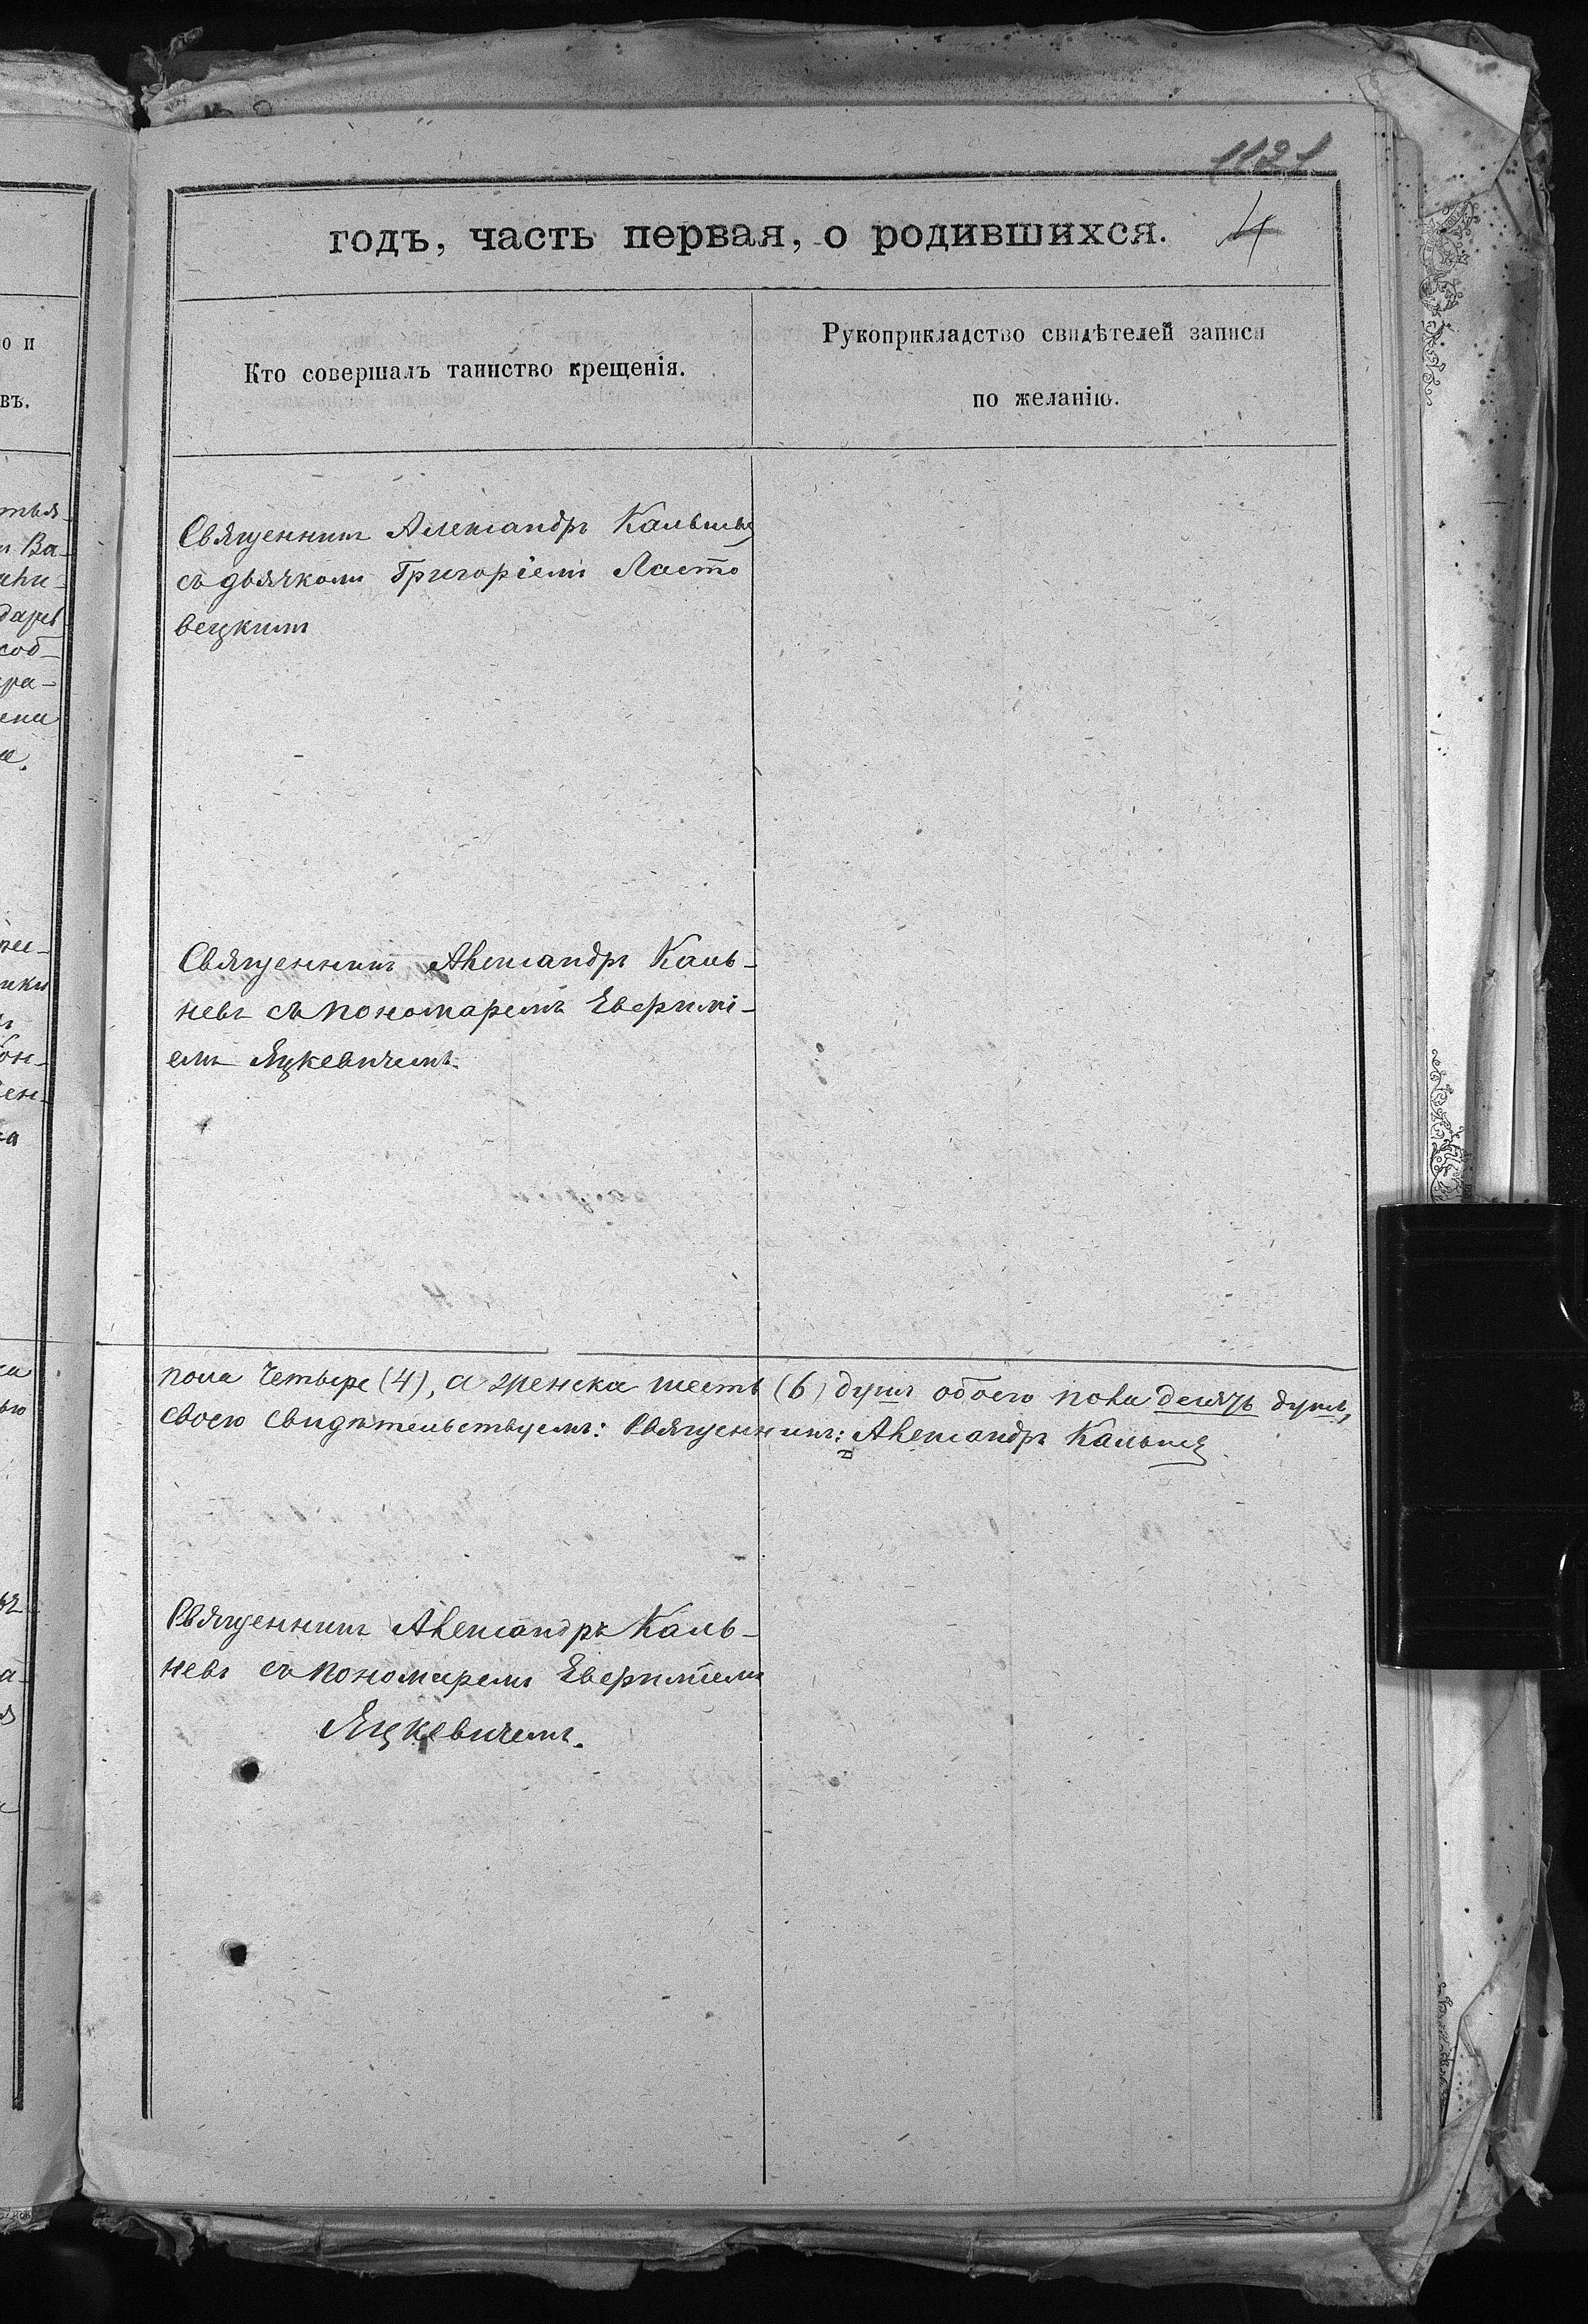 1121
годъ, часть первая, о родившихся. 4
о и
въ.
Кто совершалъ таинство крещенія.
Рукоприкладство свидѣтелей записи
по желанію.
Священникъ Александръ Кальневъ
съ дьячкомъ Григоріемъ Ласто
вецкимъ
Священникъ Александръ Каль-
невъ съ пономаремъ Евфимі-
емъ Яцкевичемъ.
пола четыре (4), а женска шесть (6) душъ обоего пола десять душъ,
своею свидѣтельствуемъ: Священникъ: Александръ Кальневъ
Священникъ Александръ Каль-
невъ съ пономаремъ Евфиміемъ
Яцкевичемъ.